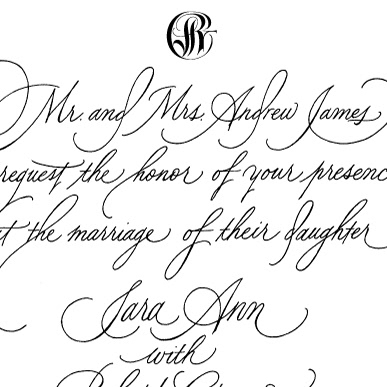 Mr. and Mrs. Andrew James
request the honor of your presenc
at the marriage of their daughter
Sara Ann
with